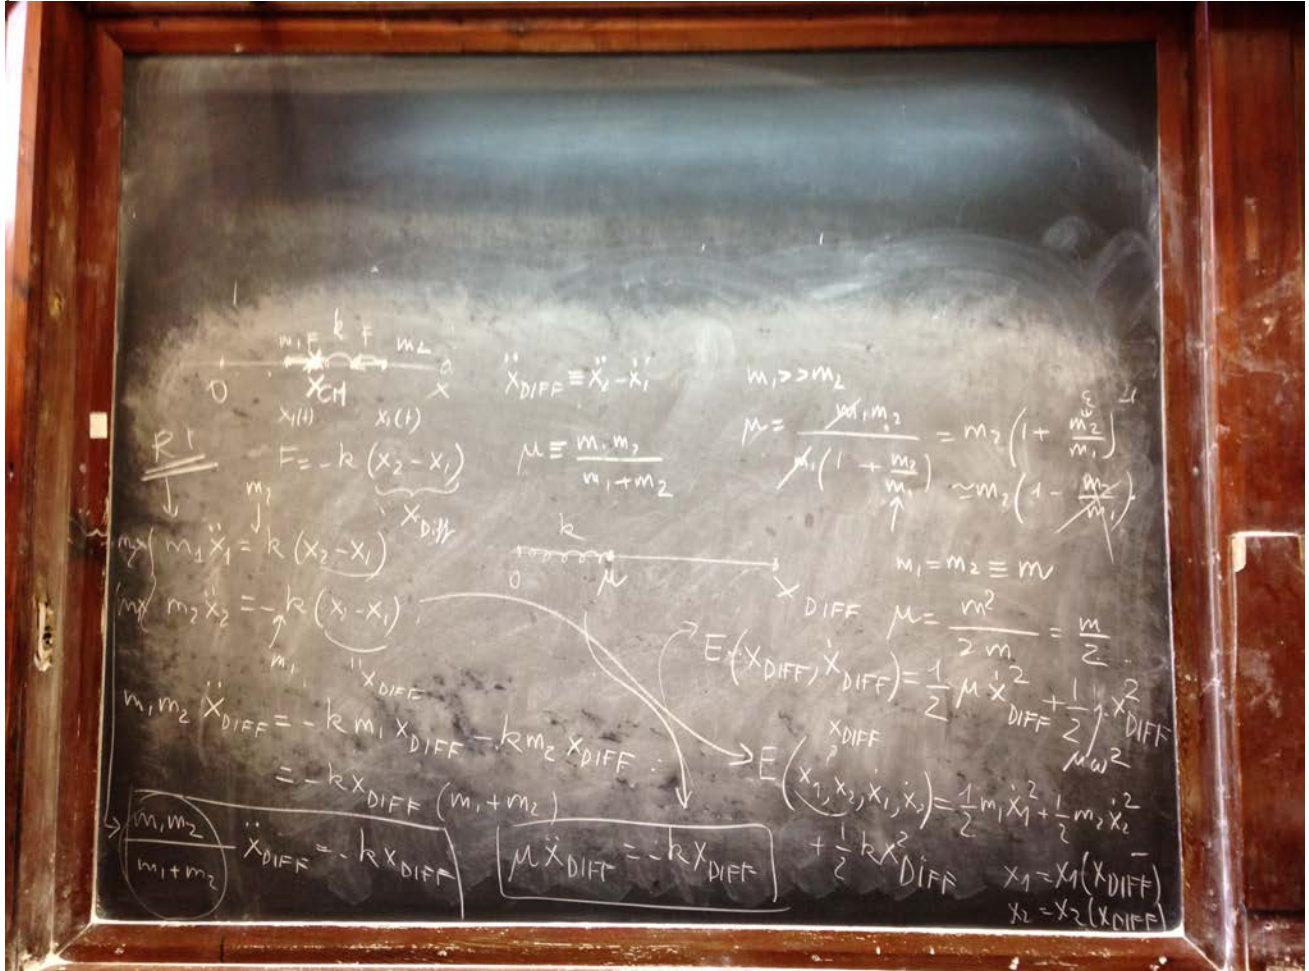 m₁ F k F m₂
0 X_CM x
x₁(t) x₁(t)
R¹
F = -k (x₂ - x₁)
x_Diff
m₂
m₂) m₁ ẍ₁ = k (x₂ - x₁)
m₂ ẍ₂ = -k (x₁ - x₁)
m₁ ẍ_DIFF
m₁ m₂ ẍ_DIFF = -k m₁ x_DIFF - k m₂ x_DIFF
= -k x_DIFF (m₁ + m₂)
m₁ m₂ / (m₁ + m₂) ẍ_DIFF = -k x_DIFF
ẍ_DIFF ≡ ẍ₁ - ẍ₁
μ ≡ m₁ m₂ / (m₁ + m₂)
k
0 μ x_DIFF
μ ẍ_DIFF = -k x_DIFF
m₁ >> m₂
ε
μ = m₁ m₂ / m₁ (1 + m₂/m₁) = m₂ (1 + m₂/m₁)⁻¹
≃ m₂ (1 - m₂/m₁)
m₁ = m₂ ≡ m
μ = m² / 2m = m/2
E(x_DIFF, ẋ_DIFF) = 1/2 μ ẋ²_DIFF + 1/2 x²_DIFF
μω²
x_DIFF
E(x₁, x₂, ẋ₁, ẋ₂) = 1/2 m₁ ẋ₁² + 1/2 m₂ ẋ₂²
+ 1/2 k x²_DIFF
x₁ = x₁(x_DIFF)
x₂ = x₂(x_DIFF)